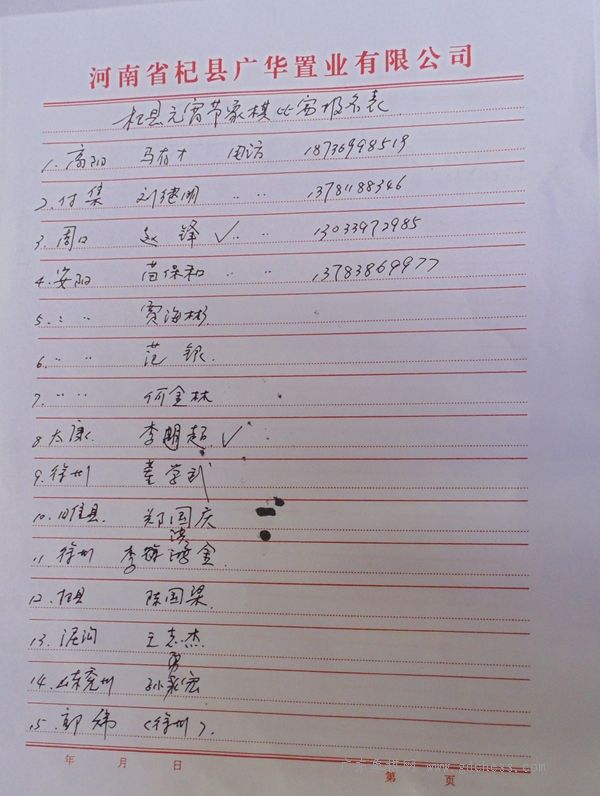 河南省杞县广华置业有限公司
杞县元宵节象棋比赛报名表
1. 高阳 马有才 电话 18736998519
2. 付集 刘继明 〃 〃 13781188346
3. 周口 赵锋 ✓ 〃 〃 13033972985
4. 安阳 苗保和 〃 〃 13783869977
5. 〃 〃 贾海彬
6. 〃 〃 范银
7. 〃 〃 何金林
8. 太康 李明超 ✓
9. 徐州 董学武
10. 睢县 郑国庆
11. 徐州 李 鸿金
12. 杞县 陈国梁
13. 泥沟 王志杰
14. 山东兖州 孙 宏
15. 郭纬 (徐州).
年 月 日
第 页
广东象棋网 www.gdchess.com